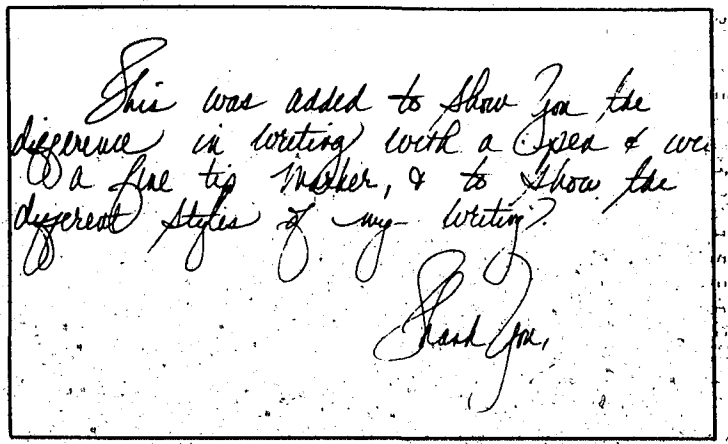 This was added to show you the
difference in writing with a pen &
a fine tip marker, & to show the
different styles of my writing?
Thank You,